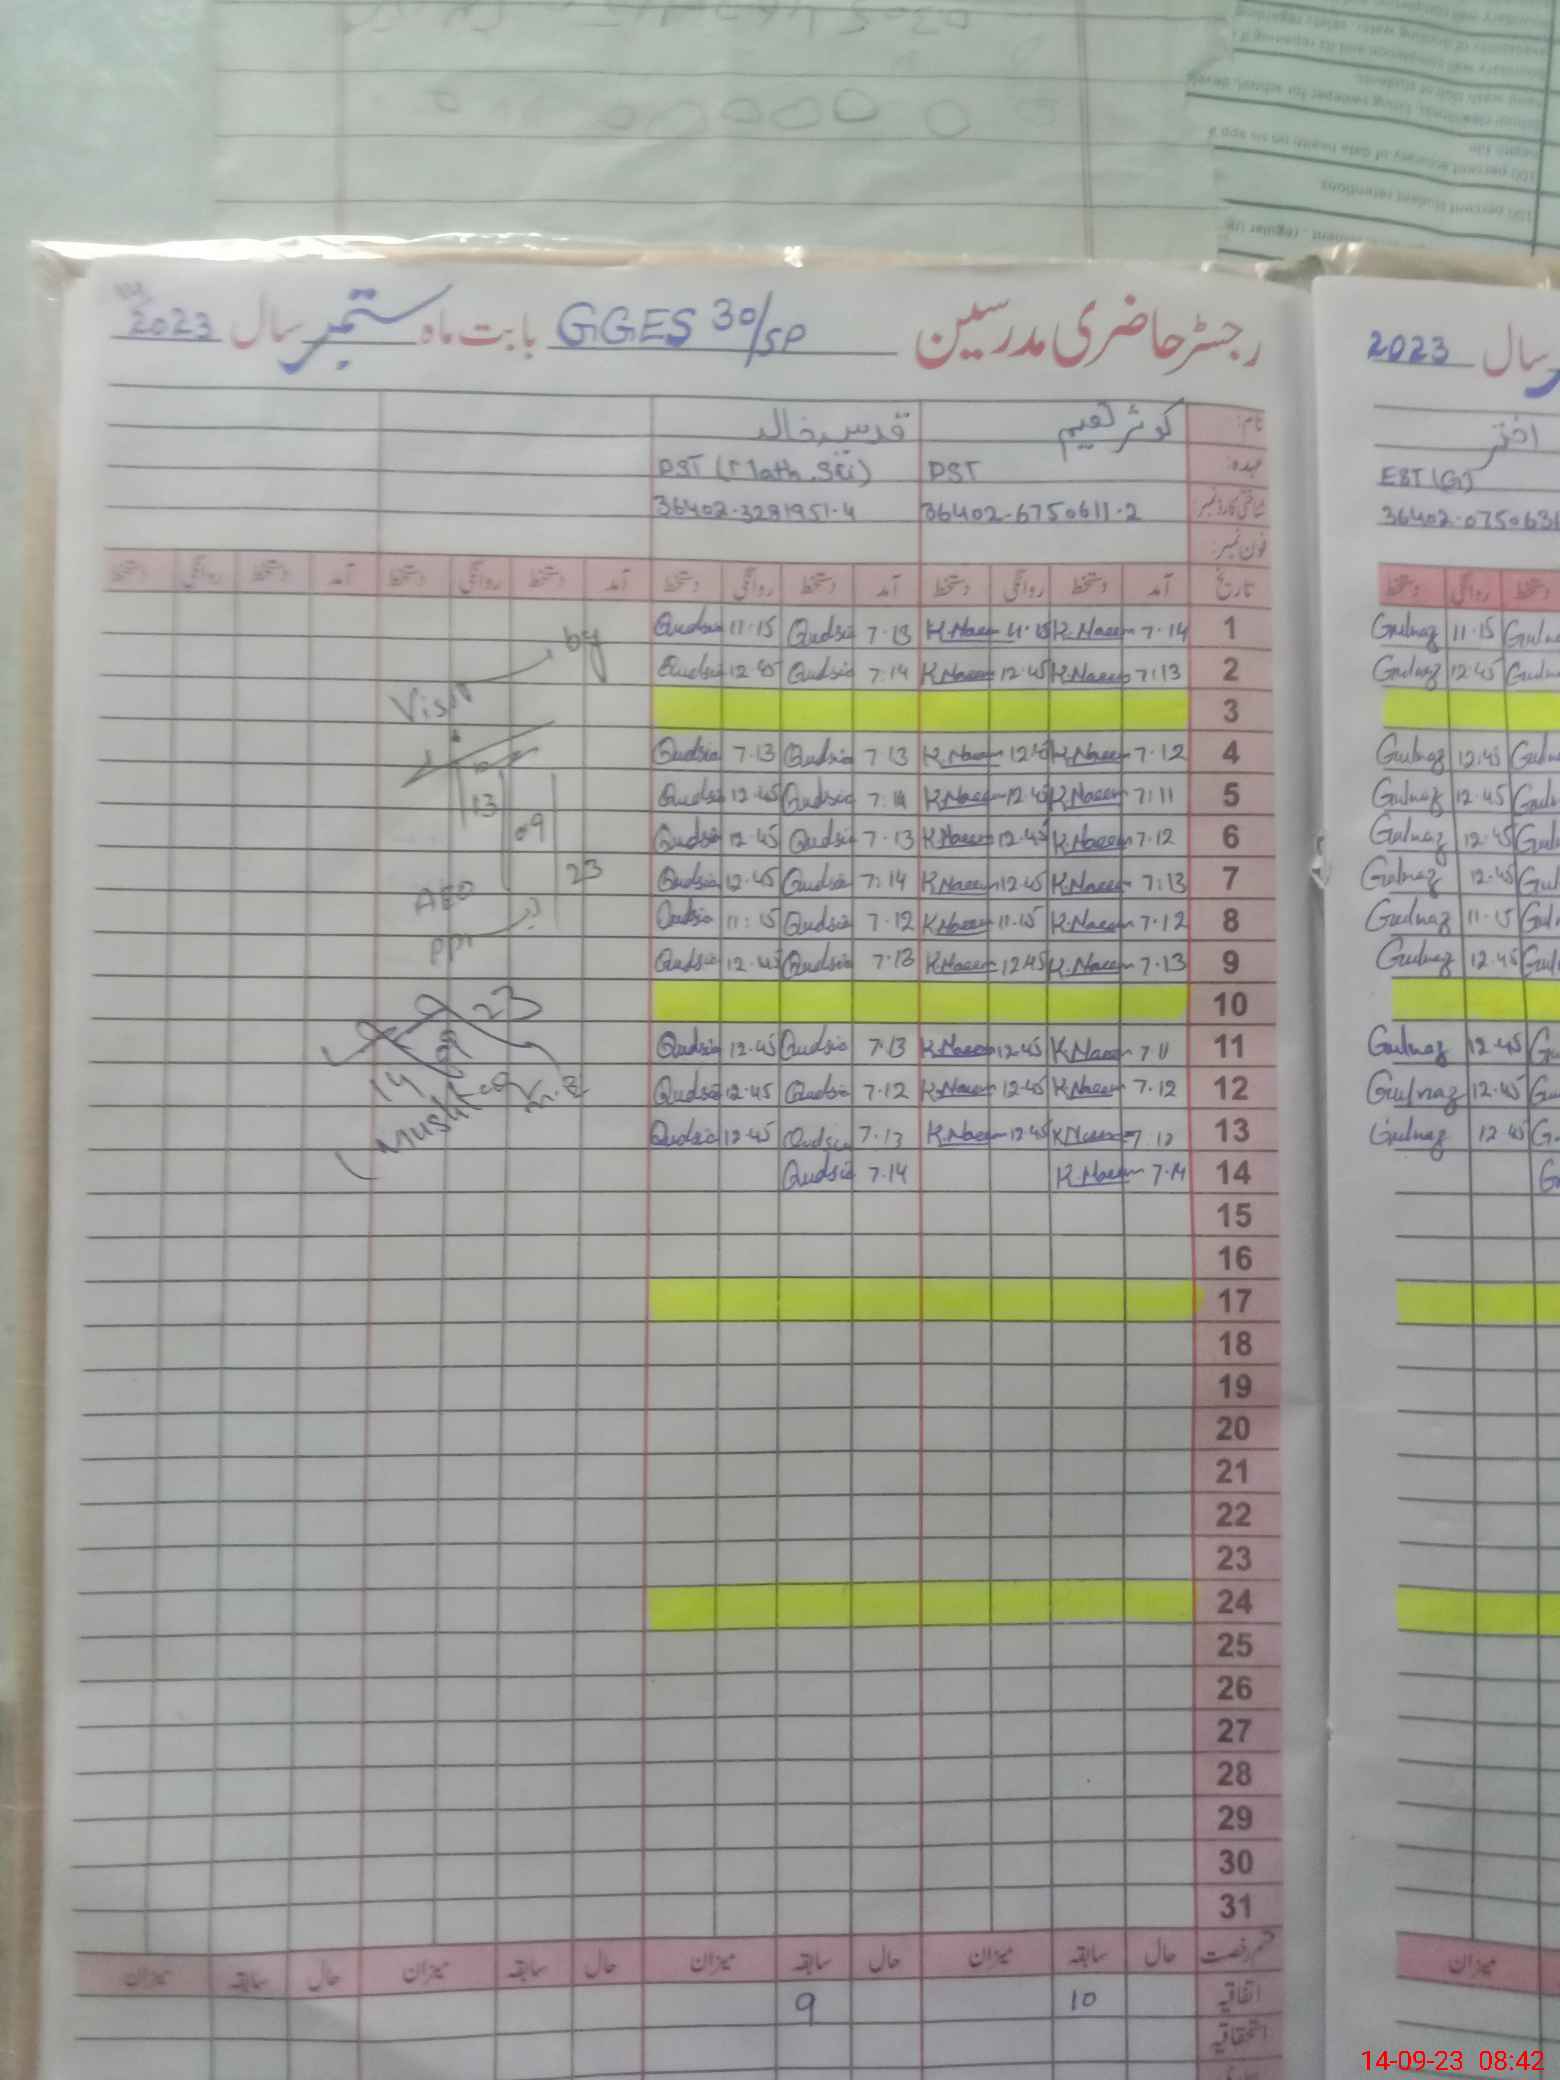 رجسٹر حاضری مدرسین GGES 30/SP بابت ماہ ستمبر سال 2023
نام: کوثر نعیم قدسیہ خالد
عہدہ: PST PST (Math.Sci)
شناختی کارڈ نمبر: 36402-6750611-2 36402-3281951-4
فون نمبر:
تاریخ آمد دستخط روانگی دستخط آمد دستخط روانگی دستخط آمد دستخط روانگی دستخط آمد دستخط روانگی دستخط
1 7.14 K.Naeem 11.15 K.Naeem 7.13 Qudsia 11.15 Qudsia
2 7:13 K.Naeem 12.45 K.Naeem 7.14 Qudsia 12.45 Qudsia
3
4 7.12 K.Naeem 12.45 K.Naeem 7.13 Qudsia 7.13 Qudsia
5 7:11 K.Naeem 12.45 K.Naeem 7:14 Qudsia 12.45 Qudsia
6 7.12 K.Naeem 12.45 K.Naeem 7.13 Qudsia 12.45 Qudsia
7 7:13 K.Naeem 12.45 K.Naeem 7:14 Qudsia 12.45 Qudsia
8 7.12 K.Naeem 11.15 K.Naeem 7.12 Qudsia 11:15 Qudsia
9 7.13 K.Naeem 12.45 K.Naeem 7.13 Qudsia 12.45 Qudsia
10
11 7.11 K.Naeem 12.45 K.Naeem 7.13 Qudsia 12.45 Qudsia
12 7.12 K.Naeem 12.45 K.Naeem 7.12 Qudsia 12.45 Qudsia
13 7.12 K.Naeem 12.45 K.Naeem 7.13 Qudsia 12.45 Qudsia
14 7.14 K.Naeem 7.14 Qudsia
15
16
17
18
19
20
21
22
23
24
25
26
27
28
29
30
31
قسم رخصت حال سابقہ میزان حال سابقہ میزان حال سابقہ میزان حال سابقہ میزان
اتفاقیہ 10 9
استحقاقیہ
Visit by
13 09 23
AEO
14 09 23
Mushtaq
سال 2023
اختر
EST (G)
36402-075063
دستخط روانگی دستخط
Gulnaz 11.15
Gulnaz 12.45
Gulnaz 12.45
Gulnaz 12.45
Gulnaz 12.45
Gulnaz 12.45
Gulnaz 11.15
Gulnaz 12.45
Gulnaz 12.45
Gulnaz 12.45
Gulnaz 12.45
میزان
100 percent student retentions
14-09-23 08:42